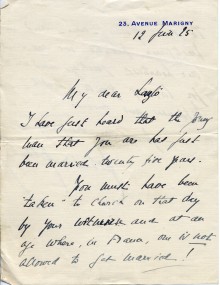 23, AVENUE MARIGNY
12 June 25
My dear Laszló
I have just heard that the young
man that you are has just
been married twenty five years.
You must have been
"taken" to church on that day
by your and at an
age where, in France, one is not
allowed to get married!